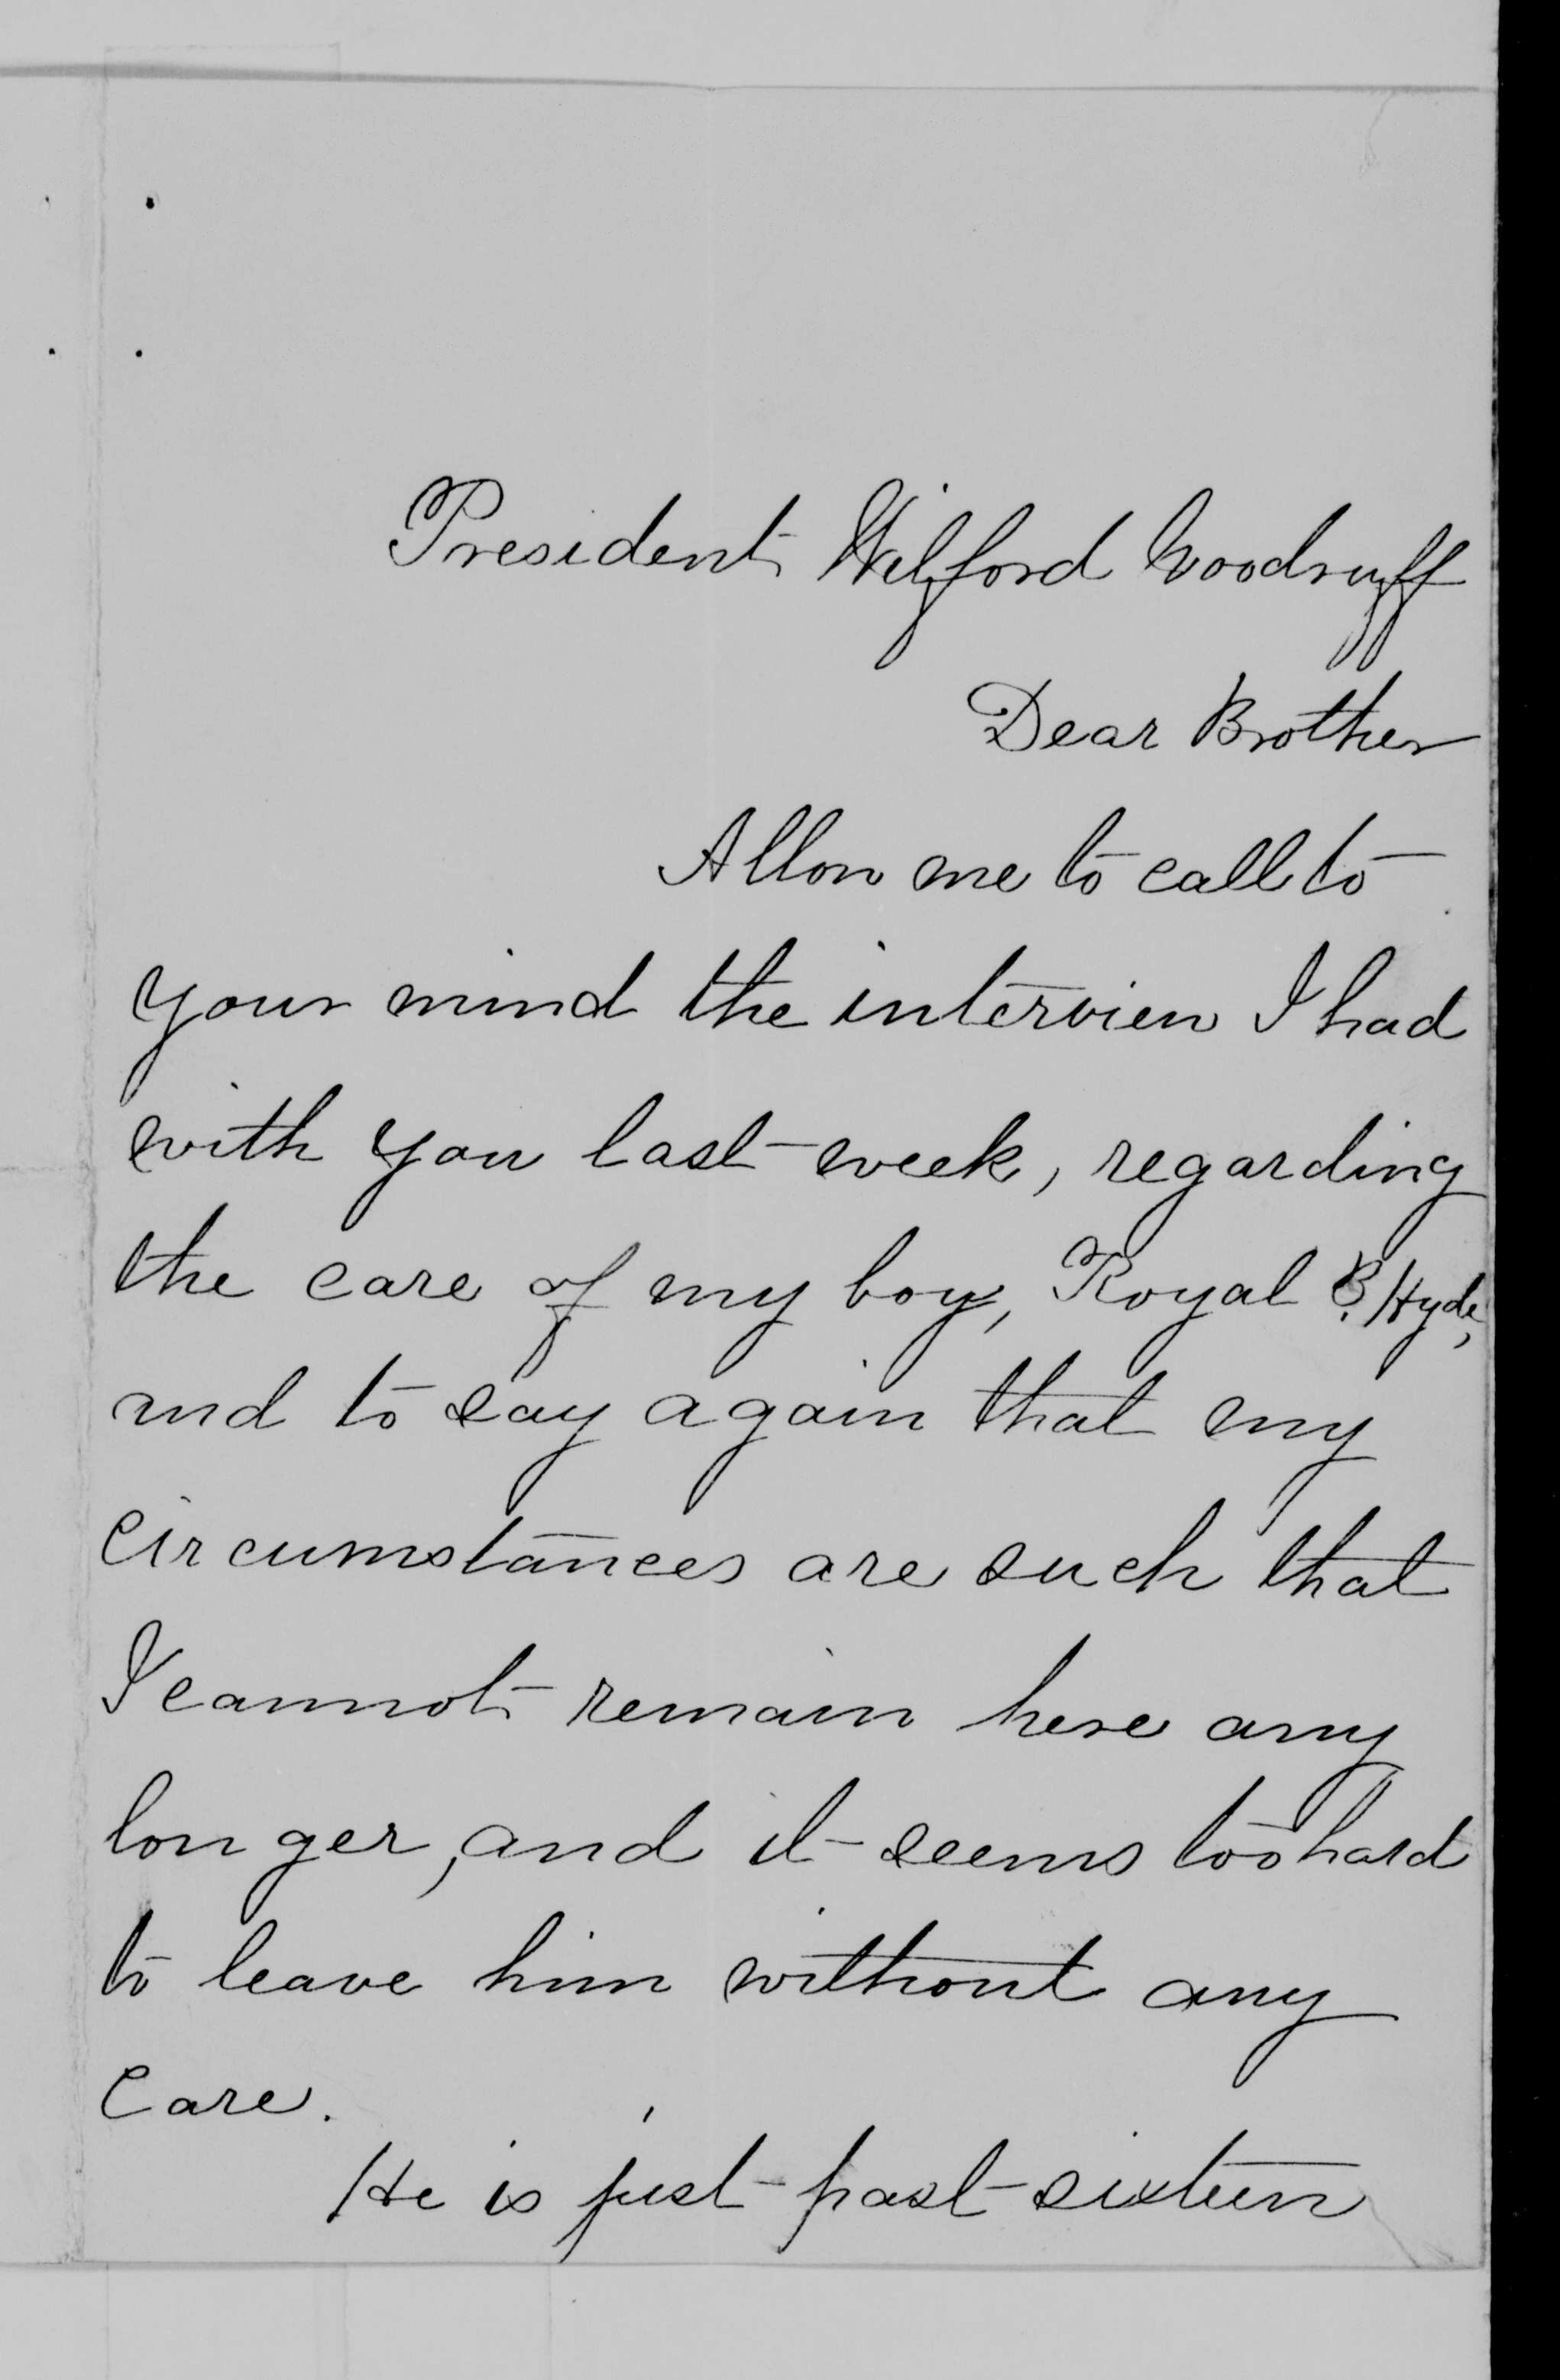 President Wilford Woodruff
Dear Brother
Allow me to call to
your mind the interview I had
with you last week, regarding
the care of my boy, Royal B. Hyde,
and to say again that my
circumstances are such that
I cannot remain here any
longer, and it seems too hard
to leave him without any
care.
He is just past sixteen